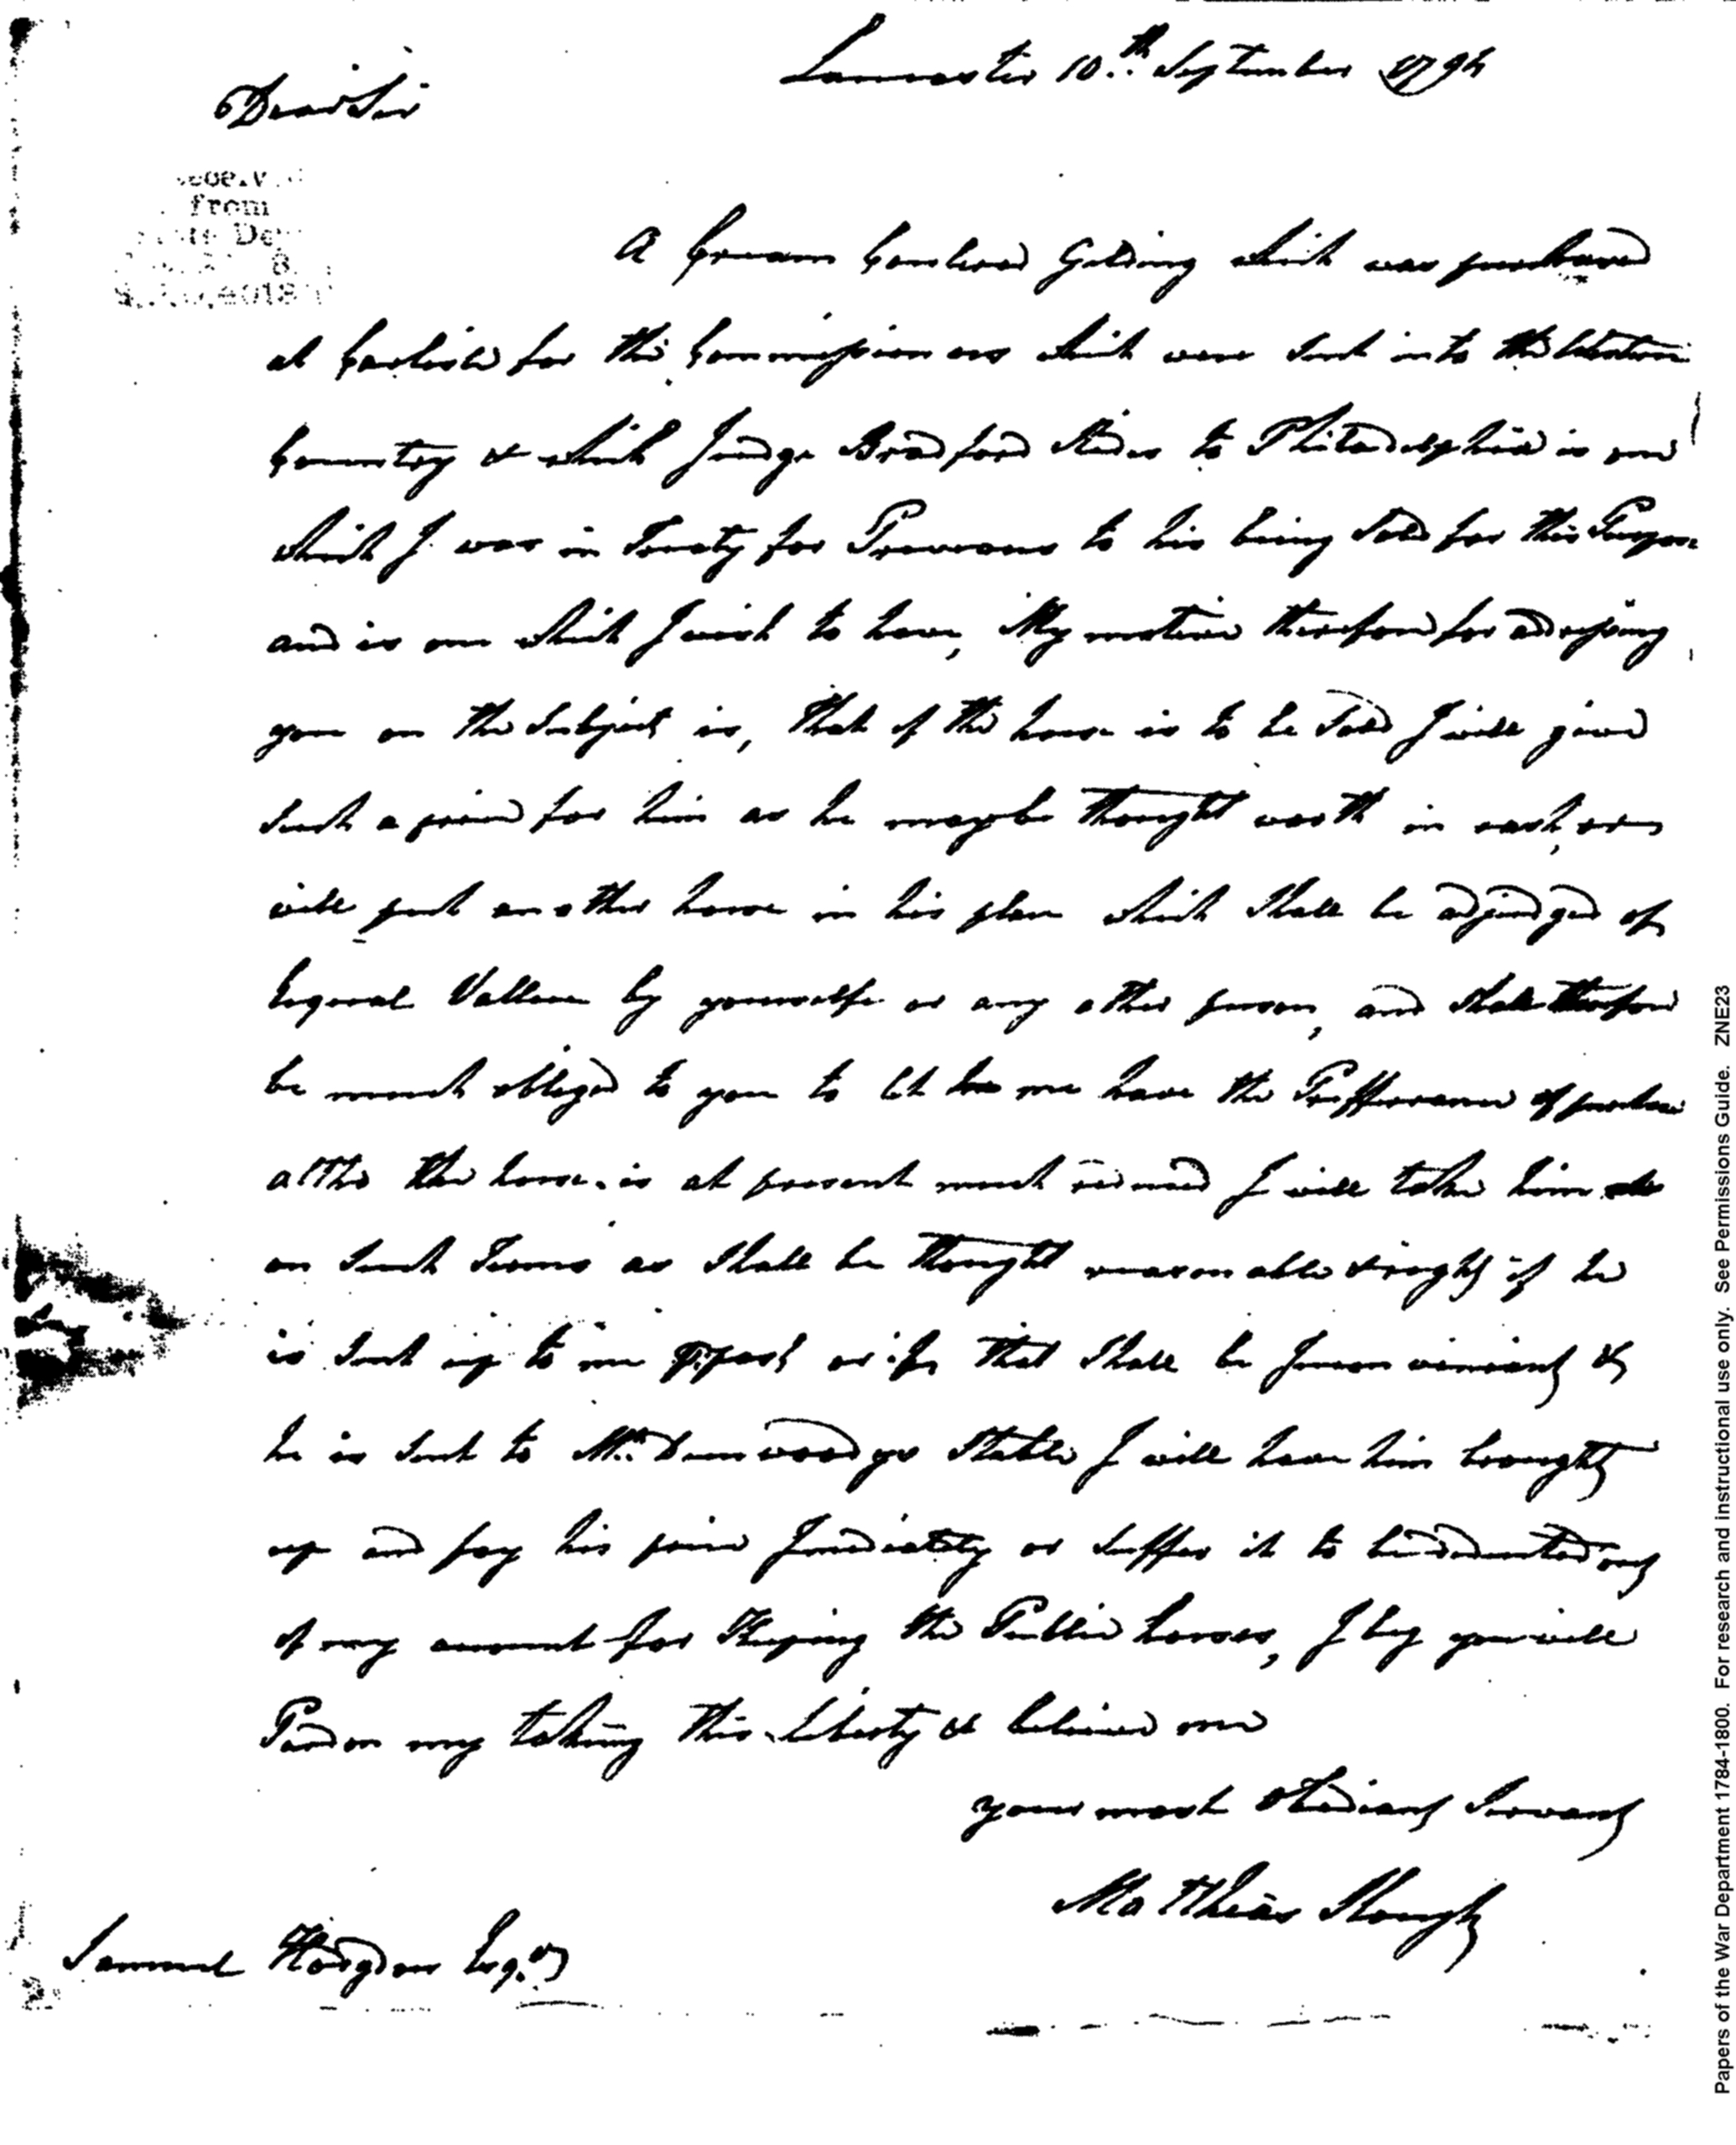 Lancaster 10th September 1794
Dear Sir
from
A Cream Couloured Gelding which was purchased
at Carlisle for the Commissioners which were sent into the Western
Country & which Judge Bradford Rides to Philadelphia is one
which I was in Treaty for Prewious to his being Sold for this Purpose
and is one which I wish to have, My motive therefore for adressing
you on the Subject is, that if the horse is to be Sold I will give
Such a price for him as he maybe thought worth in cash, or
will put another horse in his place which Shall be adjudged of
Eequal Vallue by yourselfe or any other person, and Shall therefore
be much obliged to you to let me have the Prefferance of purchase
altho the horse is at present much reduced I will take him
on Such Terms as Shall be thought reasonable & right if he
is Sent up to me or if that Shall be Inconvenient &
he is Sent to Mr. Dunwoodys Stable I will have him brought
up and pay his price Imediately or Suffer it to be deducted out
of my account for Keeping the Public horses, I beg you will
Pardon my taking this Liberty & believe me
your most obedient Servant
Matthias Slough
Samuel Hodgdon Esqr.
Papers of the War Department 1784-1800. For research and instructional use only. See Permissions Guide. ZNE23